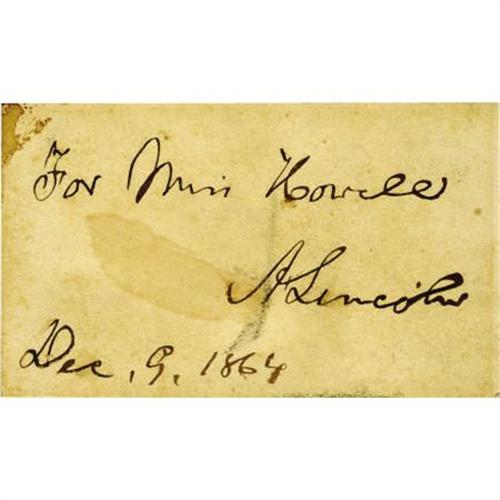 For Miss Howell
A. Lincoln
Dec. 9. 1864